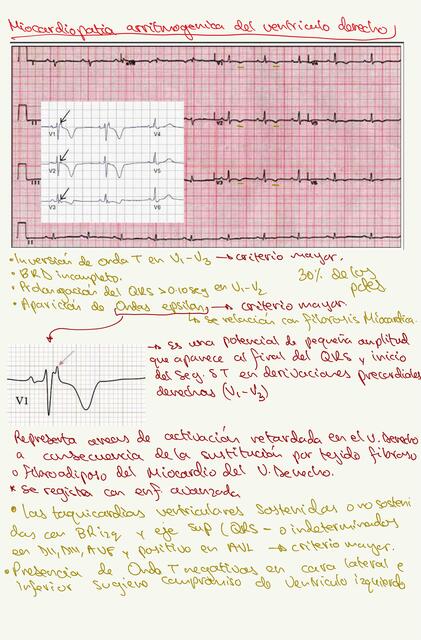 Miocardiopatia arritmogenica del ventriculo derecho
aVR
V1
V4
II
V2
V5
V1
V4
V2
V5
V3
V6
III
V3
V6
II
• Inversión de onda T en V1-V3 → criterio mayor.
• BRD incompleto.
• Prolongación del QRS >0.10seg en V1-V2
30% de los
pctes
• Aparición de Ondas epsilon, → criterio mayor.
↳ se relación con fibrosis Miocardica.
→ Es una potencial de pequeña amplitud
que aparece al final del QRS y inicio
del Seg. ST en derivaciones precordiales
derechas (V1-V3)
V1
Representa areas de activación retardada en el V. Derecho
a consecuencia de la sustitución por tejido fibroso
o fibroadiposo del Miocardio del V. Derecho.
* se registra con enf. avanzada
• Las taquicardias ventriculares sostenidas o no sosteni
das con BRizq y eje sup (QRS - o indeterminados
en DII, DIII, AVF y positivo en AVL → criterio mayor.
• Presencia de Onda T negativas en cara lateral e
Inferior sugiere compromiso de ventriculo izquierdo